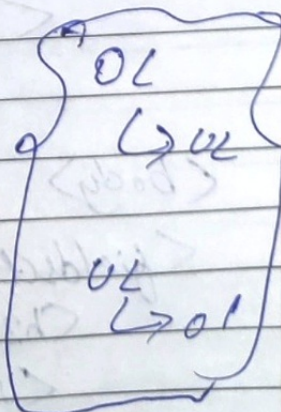 OL
↳ UL
UL
↳ ol